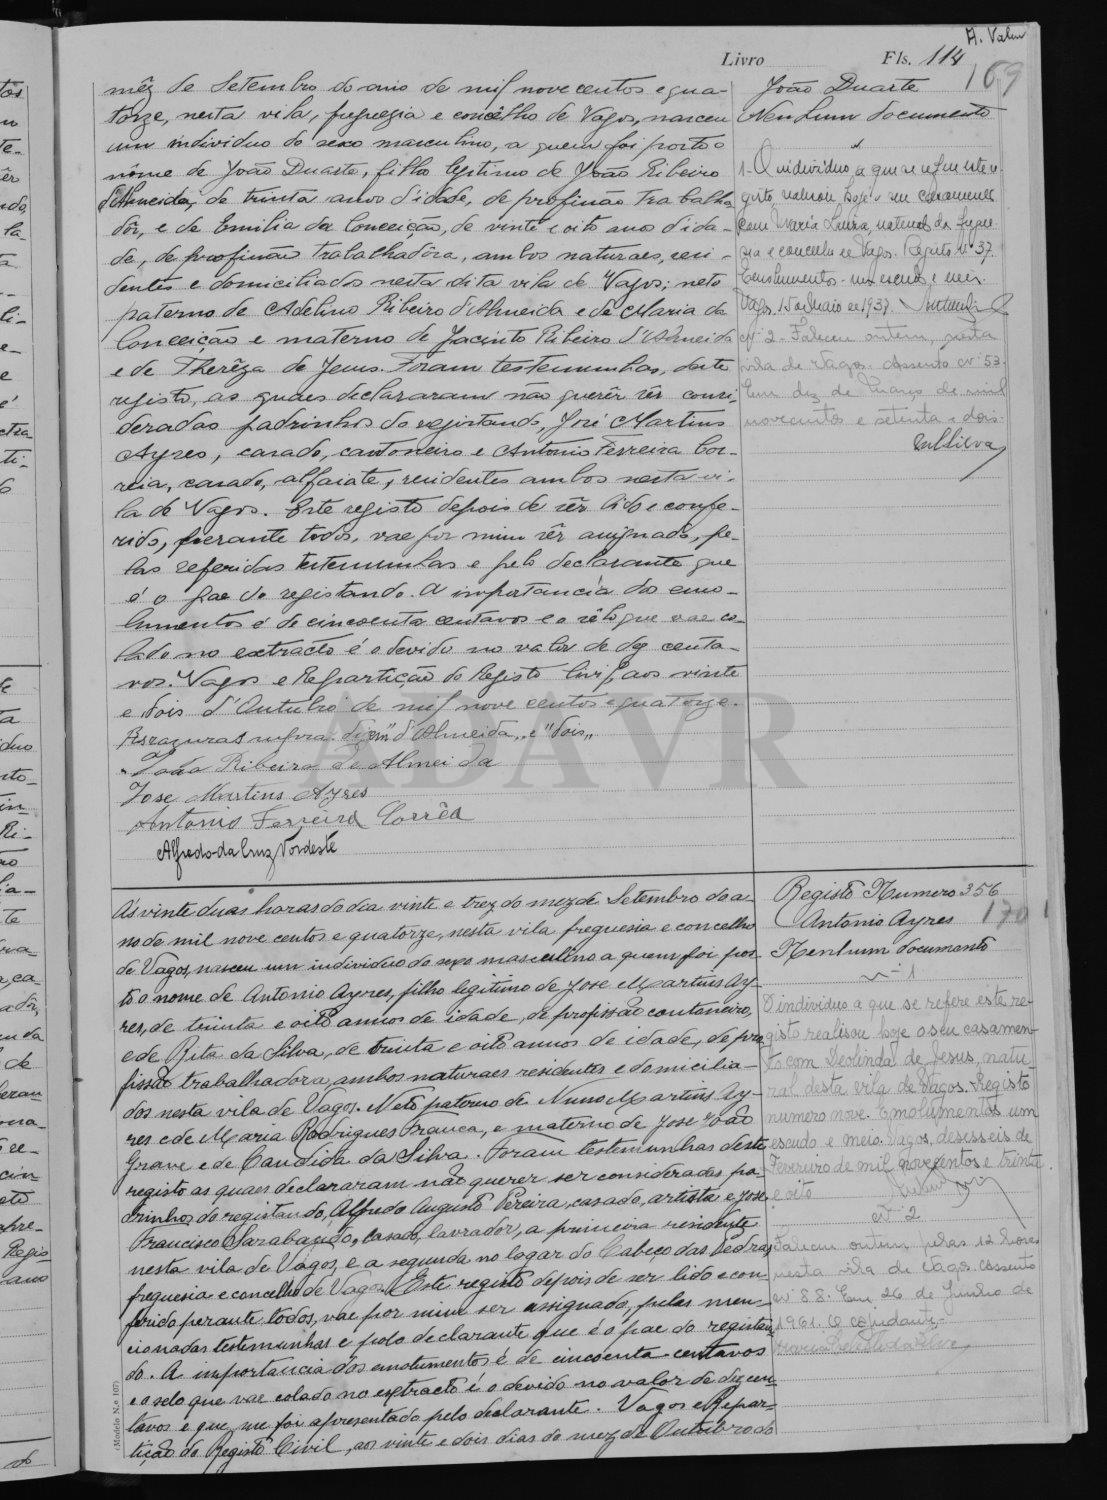 Livro Fls. 114
169
mêz de Setembro do ano de mil nove centos e qua-
torze, nesta vila, freguezia e concêlho de Vagos, nasceu
um individuo do sexo masculino, a quem foi posto o
nôme de João Duarte, filho legitimo de João Ribeiro
d'Almeida, de trinta anos d'idade, de profissão trabalha
dôr, e de Emilia da Conceição, de vinte e oito anos d'ida-
de, de profissão trabalhadôra, ambos naturaes, resi-
dentes e domiciliados nesta dita vila de Vagos; neto
paterno de Adelino Ribeiro d'Almeida e de Maria da
Conceição e materno de Jacinto Ribeiro d'Almeida
e de Therêza de Jesus. Foram testemunhas, deste
registo, as quaes declararam não querêr sêr consi-
deradas padrinhos do registando, José Martins
Ayres, casado, cantoneiro e Antonio Ferreira Cor-
reia, casado, alfaiate, residentes ambos nesta vi-
la de Vagos. Este registo depois de sêr lido e confe-
rido, perante todos, vae por mim sêr assignado, pe-
las referidas testemunhas e pelo declarante que
é o pae do registando. A importancia dos emo-
lumentos é de cincoenta centavos e o sêlo que vae co-
lado no extracto é o devido no valor de dez centa-
vos. Vagos e Repartição do Registo Civil, aos vinte
e dois d'Outubro de mil nove centos e quatorze.
Rasaduras supra: dizem "d'Almeida,, e "dois,,
João Ribeiro de Almeida
Jose Martins Ayres
Antonio Ferreira Corrêa
Alfredo da Cruz Nordeste
João Duarte
Nenhum documento
1- O individuo a que se refere este re
gisto, realisou hoje o seu casamento
com Maria Laura, natural da fregue
zia e concelho de Vagos. Registo Nº 37.
Emolumentos - um escudo e meio.
Vagos, 15 de Maio de 1937.
Nº 2 - Faleceu ontem, nesta
vila de Vagos. Assento Nº 53.
Em dez de Março de mil
novecentos e setenta e dois.
ADAVR
Ás vinte duas horas do dia vinte e trez do mez de Setembro do an-
no de mil nove centos e quatorze, nesta vila freguesia e concelho
de Vagos, nasceu um individuo do sexo masculino a quem foi pos-
to o nome de Antonio Ayres, filho legitimo de Jose Martins Ay-
res, de trinta e oito annos de idade, de profissão cantoneiro,
e de Rita da Silva, de trinta e oito annos de idade, de pro-
fissão trabalhadora, ambos naturaes residentes e domicilia-
dos nesta vila de Vagos. Neto paterno de Nuno Martins Ay-
res e de Maria Rodrigues Franca, e materno de Jose João
Grave e de Candida da Silva. Foram testemunhas deste
registo as quaes declararam não querer ser consideradas pa-
drinhos do registando, Alfredo Augusto Pereira, casado, artista e Jose
Francisco Sarabando, casado, lavrador, a primeira residente
nesta vila de Vagos, e a segunda no logar do Cabeço das Pedras,
freguesia e concelho de Vagos. Este registo depois de ser lido e con-
ferido perante todos, vae por mim ser assignado, pelas men-
cionadas testemunhas e pelo declarante que é o pae do registan-
do. A importancia dos emolumentos é de cincoenta centavos
e o selo que vae colado no extracto é o devido no valor de dez cen-
tavos e que me foi apresentado pelo declarante. Vagos e Repar-
tição do Registo Civil, aos vinte e dois dias do mez de Outubro do
Registo Numero 356
Antonio Ayres 170
Nenhum documento
Nº 1
O individuo a que se refere este re-
gisto realisou hoje o seu casamen-
to com Deolinda de Jesus, natu-
ral desta vila de Vagos. Registo
numero nove. Emolumentos um
escudo e meio. Vagos, desesseis de
Fevereiro de mil novecentos e trinta
e oito
Nº 2
Faleceu ontem pelas 12 horas
nesta vila de Vagos. Assento
Nº 88. Em 26 de Junho de
1961. O ajudante,
(Modelo N.º 107)